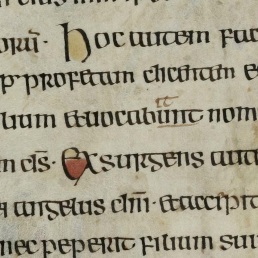 orū · hoc autem fac
ꝑ profetam dicentem e
lium et uocabunt nom
m d̄s · Exsurgens aut
i angelus dn̄i · et accepit
nec peperit filium suu